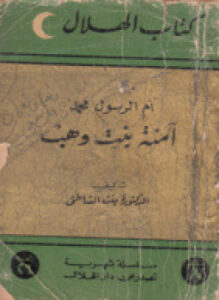 كتاب الهلال
أم الرسول محمد
آمنة بنت وهب
تأليف
الدكتورة بنت الشاطئ
سلسلة شهرية
تصدر عن دار الهلال